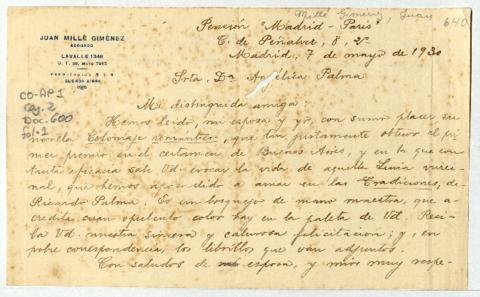 Millé Giménez, Juan
640
JUAN MILLÉ GIMÉNEZ
ABOGADO
LAVALLE 1346
BUENOS AIRES
CO-AP1
Caj. 2
Doc. 600
fol. 1
Pensión "Madrid-Paris"
C. de Peñalver, 8, 2º
Madrid, 7 de mayo de 1930
Srta. Dª Angélica Palma
Mi distinguida amiga:
Hemos leído, mi esposa y yo, con sumo placer su
novela Coloniaje romántico, que tan justamente obtuvo el pri-
mer premio en el certamen de Buenos Aires, y en la que con
tanta eficacia sabe Vd. evocar la vida de aquella Lima virrei-
nal, que hemos aprendido a amar en las Tradiciones, de
Ricardo Palma. Es un bosquejo de mano maestra, que a-
credita cuan opulento color hay en la paleta de Vd. Reci-
ba Vd. nuestra sincera y calurosa felicitación; y, en
pobre correspondencia, los librillos que van adjuntos.
Con saludos de mi esposa, y míos muy respe-